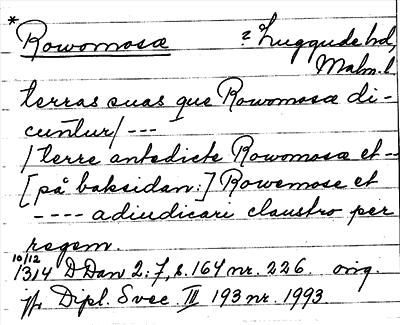 * Rowomosæ ? Luggude hd,
Malm. l.
terras suas que Rowomosæ di-
cuntur/ ---
/terre antedicte Rowomosæ et --
[på baksidan:] Rowemose et
---- adiudicari claustro per
regem.
10/12 1314 DDan 2:7, s. 164 nr. 226. orig.
Dipl. Svec. III 193 nr. 1993.